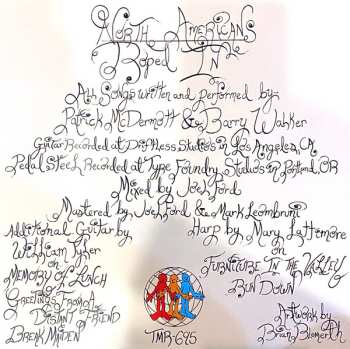 North Americans
Roped In
All Songs written and performed by
Patrick McDermott & Barry Walker
Guitar Recorded at Dropness Studios in Los Angeles, CA
Pedal Steel Recorded at Type Foundry Studios in Portland, OR
Mixed by Joel Ford
Mastered by Joel Ford & Mark Leombruni
Additional Guitar by
William Tyler
on
Memory of Lunch
Greetings From A
Distant Friend
Break Maiden
Harp by Mary Lattimore
on
Furniture In The Valley
Run Down
TMR-695
Artwork by
Brian Blomerth